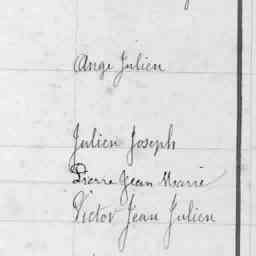 Ange Julien
Julien Joseph
Pierre Jean Marie
Victor Jean Julien